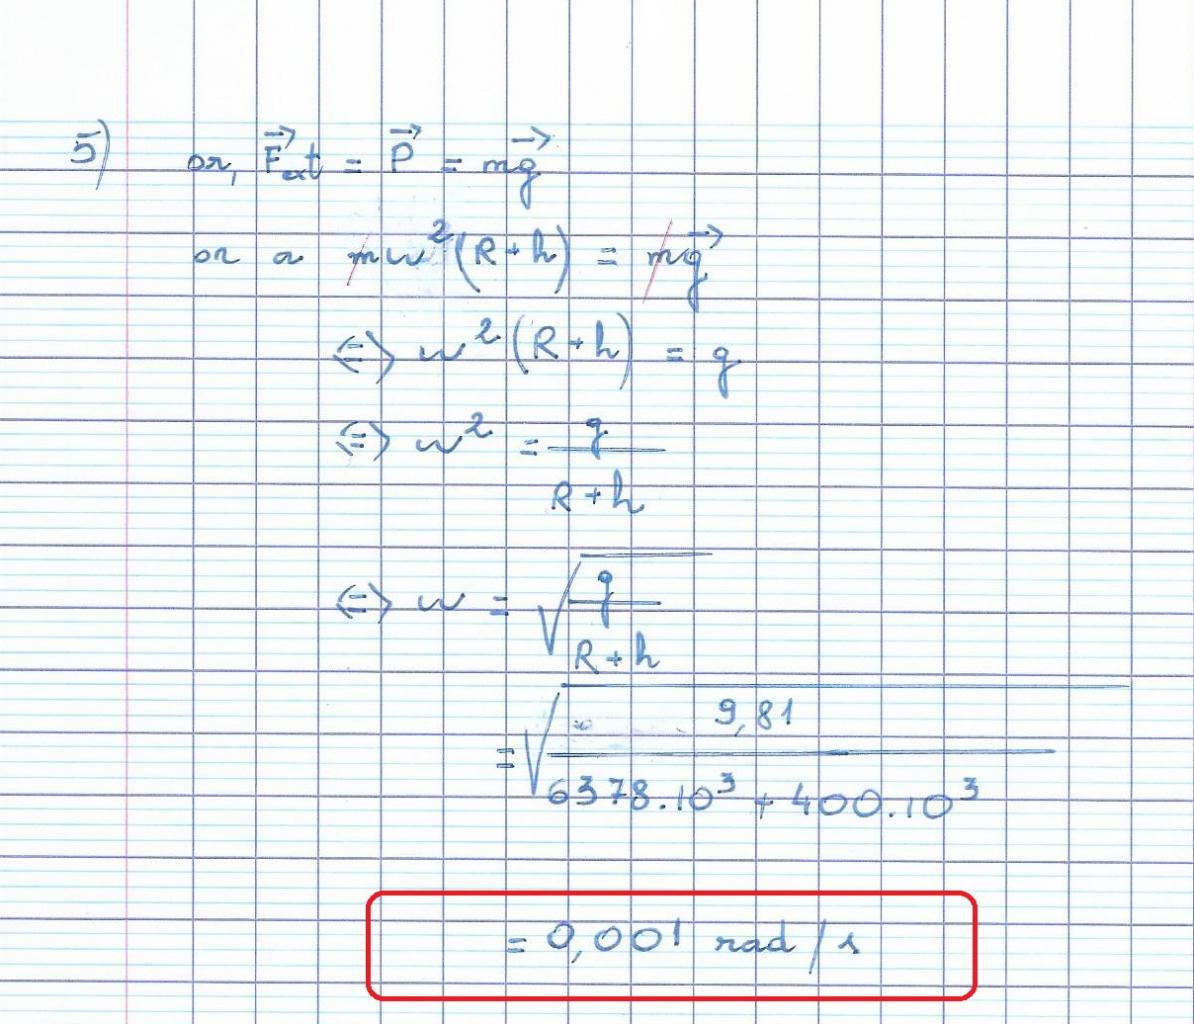 5) or, F⃗ext = P⃗ = mg⃗
or a mw²(R+h) = mg⃗
⇔ w²(R+h) = g
⇔ w² = g / R+h
⇔ w = √(g / R+h)
= √(9,81 / 6378.10³ + 400.10³)
= 0,001 rad/s